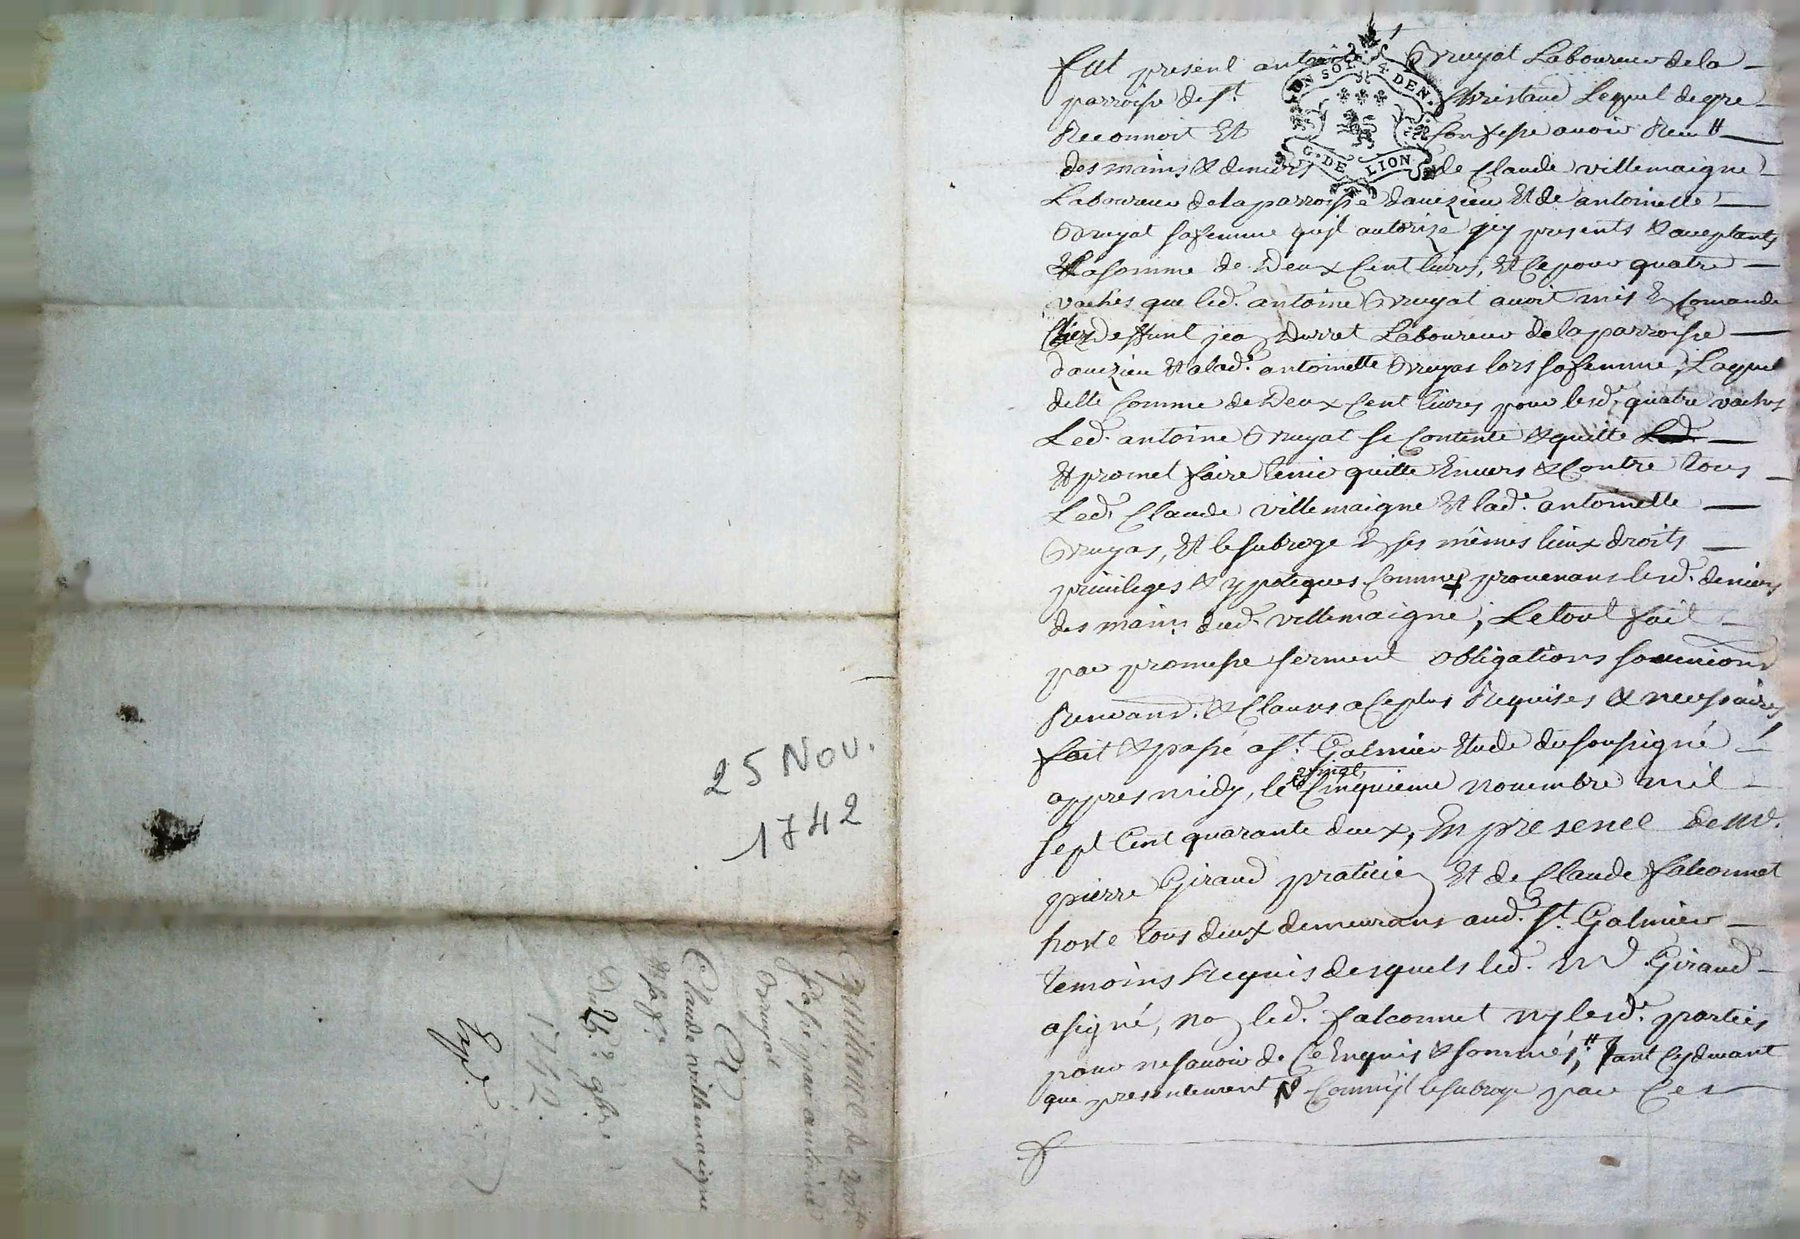 fut present antoine Bruyat Laboureur de la
parroisse de St. Christaud Lequel de gre
Reconnoit Et Confesse avoir Receu #
des mains & deniers de Claude villemaigne
Laboureur de la parroisse d'aveizieu Et de antoinette
Bruyat sa femme qu'il autorize icy presents & aceptants
La somme de Deux Cent livres, Et Ce pour quatre
vaches que led. antoine Bruyat avoit mis En Comande
Chez deffunt jean Durret Laboureur de la parroisse
d'aveizieu Et a lad. antoinette Bruyas lors sa femme, Laquel
delle somme de Deux Cent livres pour lesd. quatre vaches
Led. antoine Bruyat se Contente & quitte
Et promet faire tenir quitte Envers & Contre tous
Led. Claude villemaigne Et lad. antoinette
Bruyas, Et le subroge En ses mêmes lieux droits
privileges & ypoteques Comme provenans lesd. deniers
des mains dud. villemaigne; Le tout fait
par promesse serment obligations soumissions
Renonciand. & Clauses a Ce plus Requises & necessaires
fait & passé a St. Galmier Etude du soussigné
appres midy, le vingt Cinquieme novembre mil
sept Cent quarante deux, En presence de me.
pierre Giraud praticien Et de Claude falconnet
hoste tous deux demeurans aud. St. Galmier
temoins Requis desquels led. me Giraud
a signé, non led. falconnet ny lesd. parties
pour ne savoir de Ce Enquis & sommés, # tant Cy devant
que presentement Comm'jl le subroge par Ces
25 Nov.
1742
Quittance de 200 ₶
passé par antoine
Bruyat
A
Claude villemaigne
& sa fe.
Du 25e 9bre
1742.
Exp.